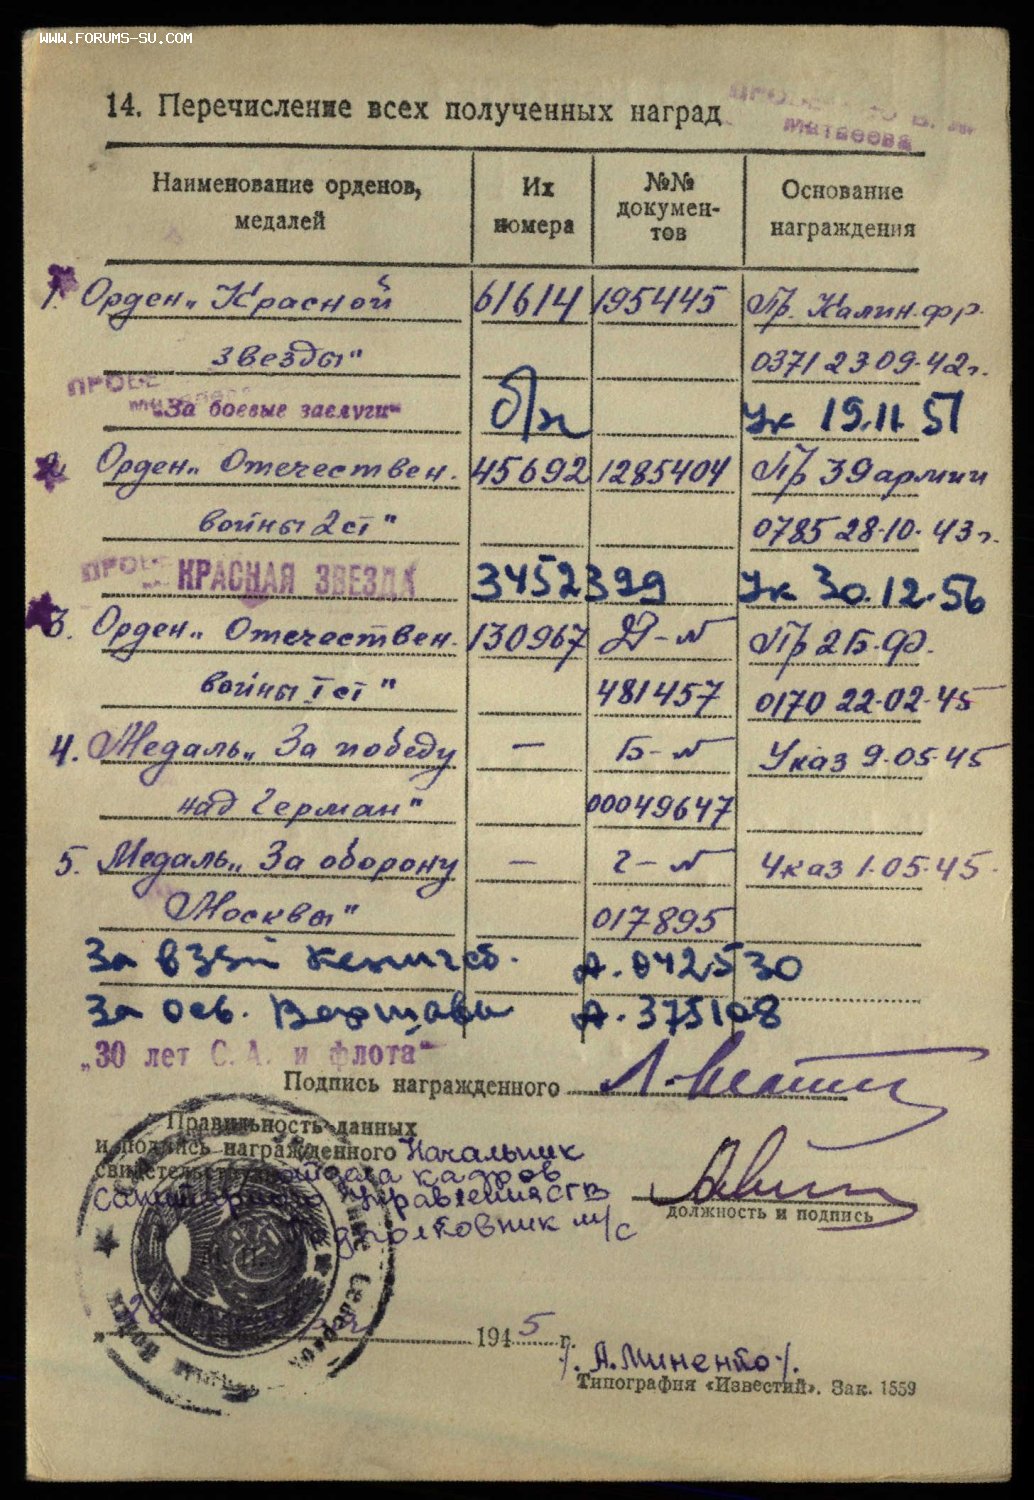 WWW.FORUMS-SU.COM
14. Перечисление всех полученных наград
Матвеева
Наименование орденов, медалей
Их номера
№№ докумен-тов
Основание награждения
1. Орден „Красной 61614 195445 Пр. Калин. фр.
Звезды" 0371 23.09.42г.
„За боевые заслуги" б/н Ук 19.11.51
2. Орден „Отечествен. 45692 1285404 Пр 39 армии
войны 2 ст" 0785 28.10.43г.
КРАСНАЯ ЗВЕЗДА 3452399 Ук 30.12.56
3. Орден „Отечествен. 130967 Д-№ Пр 2 Б.Ф.
войны I ст" 481457 0170 22.02.45
4. Медаль „За победу — Б-№ Указ 9.05.45
над Герман" 00049647
5. Медаль „За оборону — Г-№ Указ 1.05.45.
Москвы" 017895
За взят Кенигсб. А. 042530
За осв. Варшавы А. 375108
„30 лет С. А. и флота"
Подпись награжденного
Правильность данных
и подпись награжденного Начальник
свидетельствую отдела кадров
Санитарного Управления СГВ
Подполковник м/с
должность и подпись
1945 г.
/. А. Миненко /.
Типография «Известий». Зак. 1559